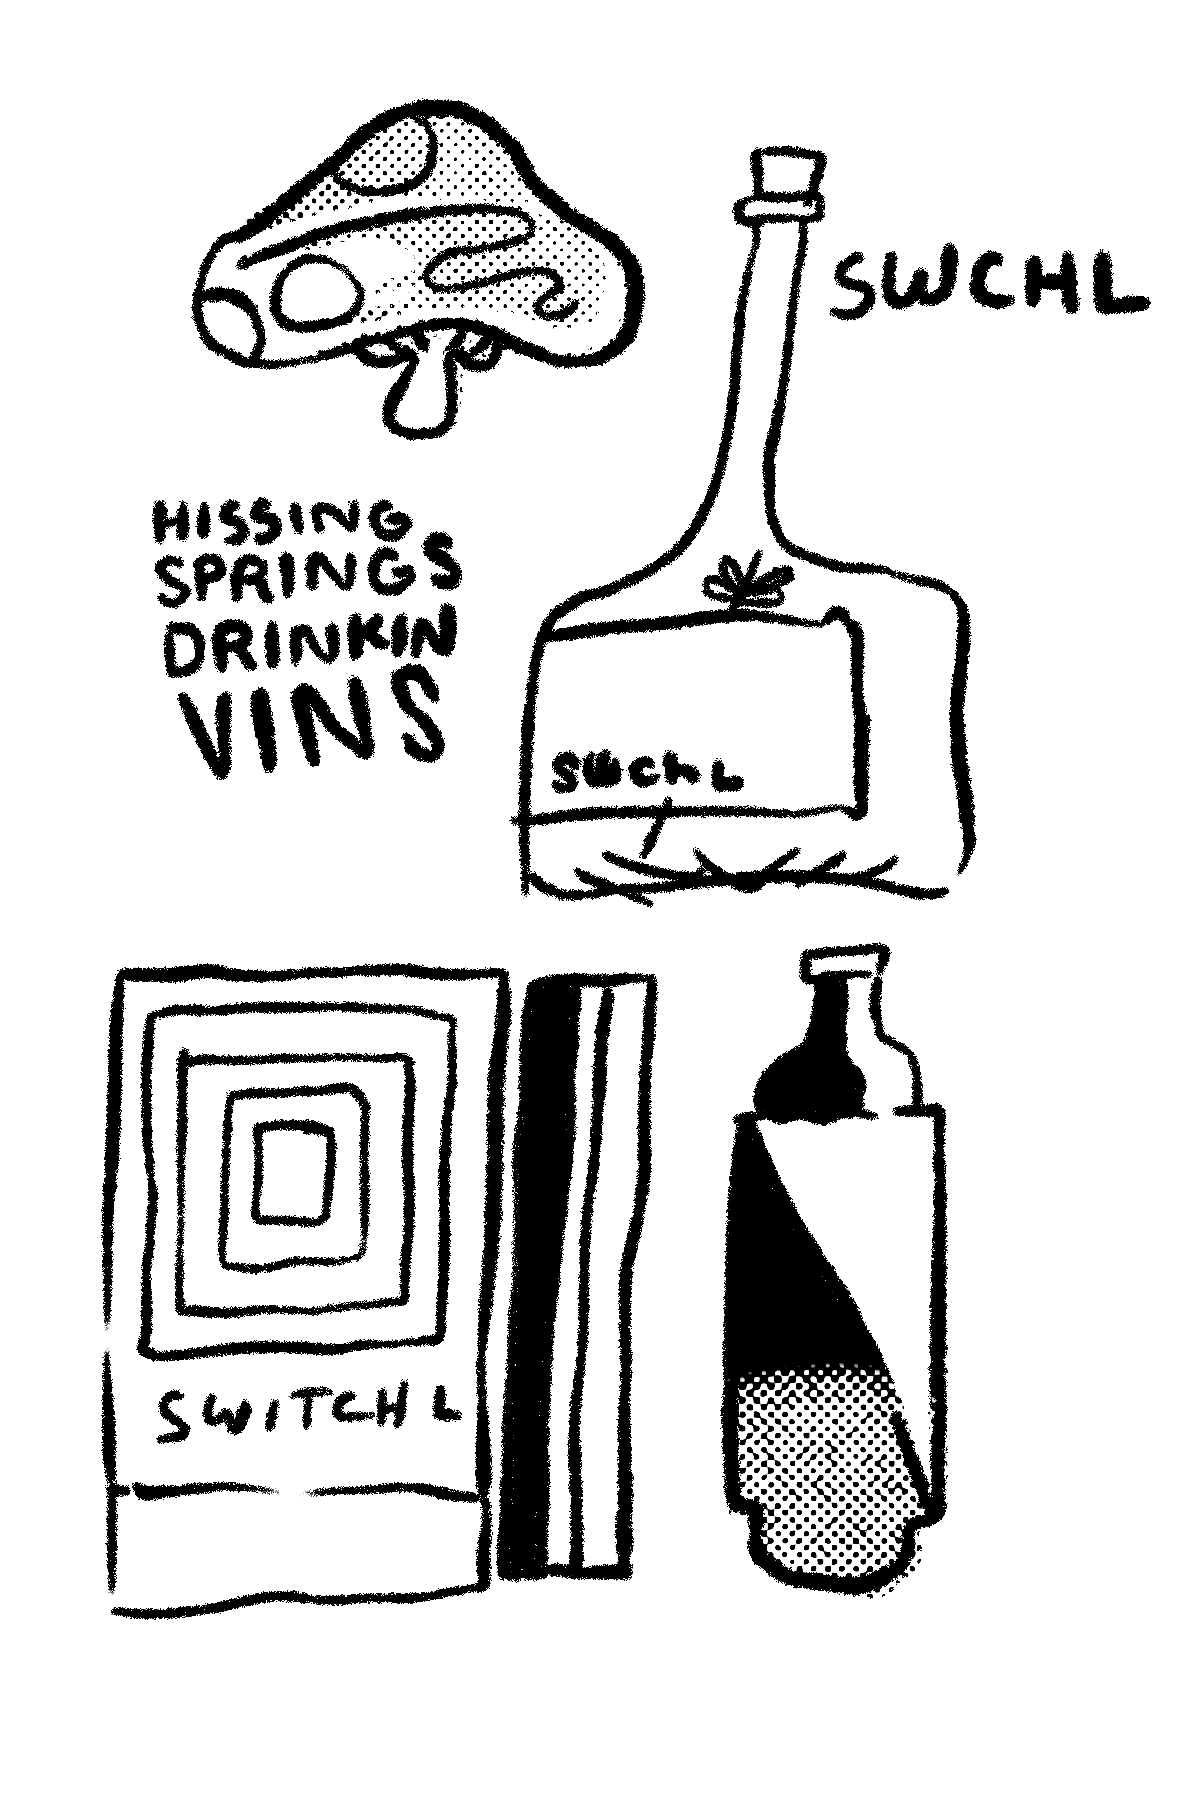 SWCHL
HISSING
SPRINGS
DRINKIN
VINS
SWCHL
SWITCHL